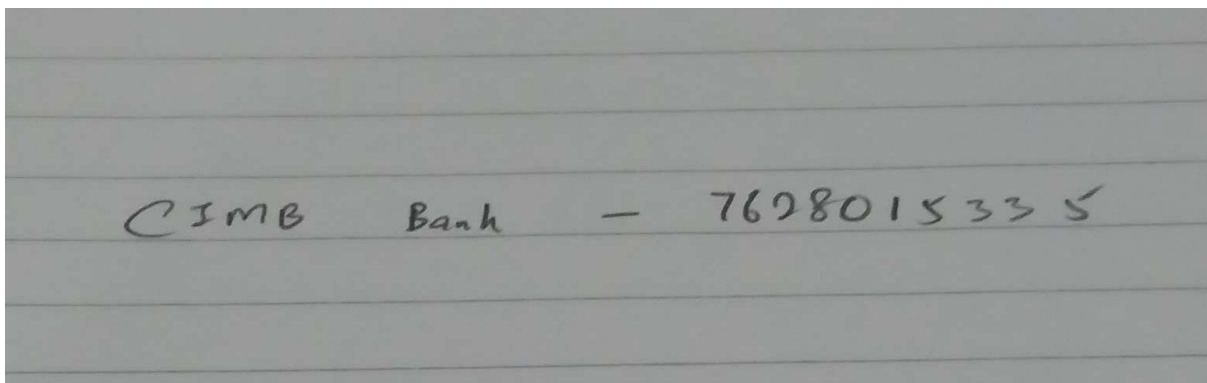 CIMB Bank - 7628015335